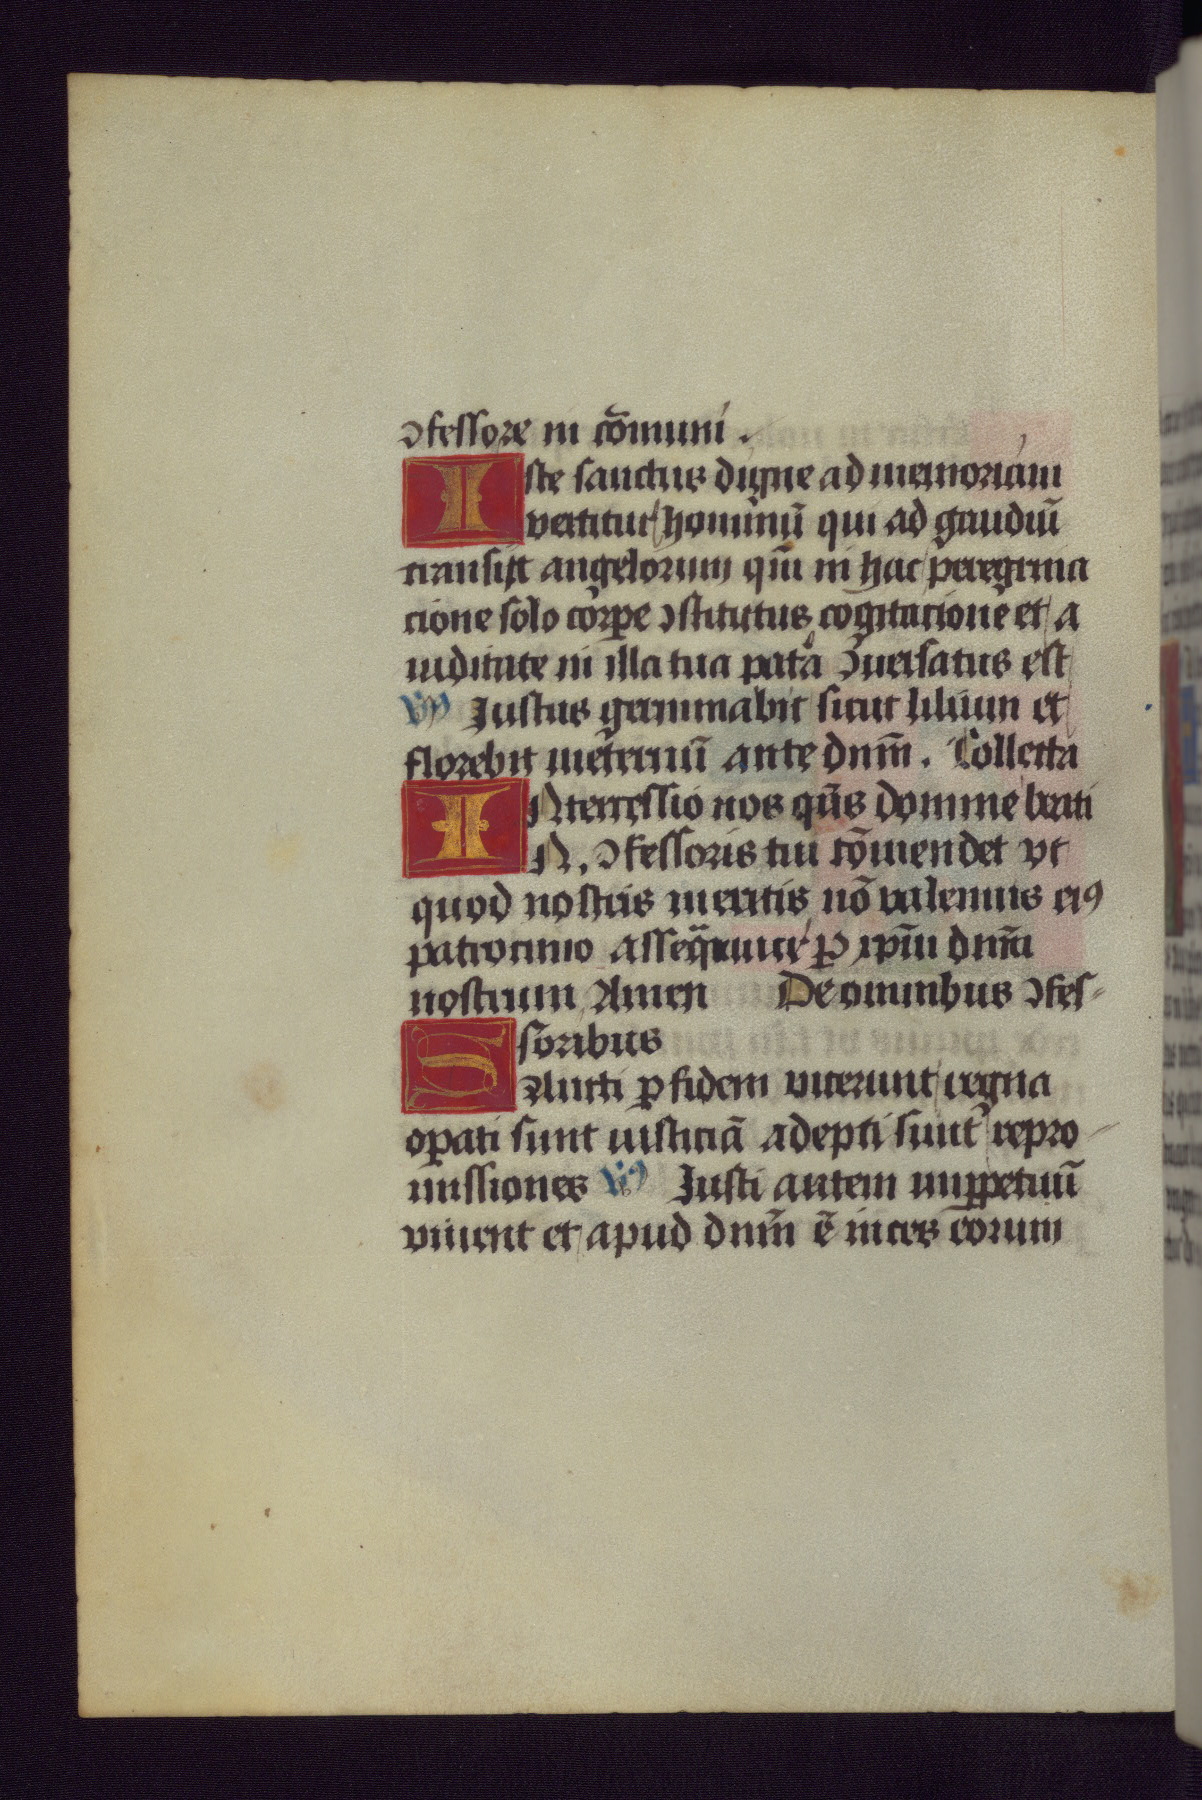 ↄfessore in cōmuni.
Iste sanctus digne ad memoriam
vertitur hominū qui ad gaudiū
transijt angelorum qm̄ in hac peregrina
cione solo corpe ↄstitutus cogitacione et a
uiditate in illa tua patͣa ↄuersatus est
v̄s Justus germinabit sicut lilium et
florebit ineternū ante dnm̄. Collecta
INtercessio nos qs̄ domine beati
N. ↄfessoris tui cōmendet vt
quod nostris meritis nō valemus eiꝯ
patrocinio assequamur P xpm̄ dnm̄
nostrum Amen De omnibus ↄfes-
soribus
SAncti ꝑ fidem vicerunt regna
oꝑati sunt iusticiā adepti sunt repro-
missiones v̄s Justi autem inꝑpetuū
viuent et apud dnm̄ ē merces eorum